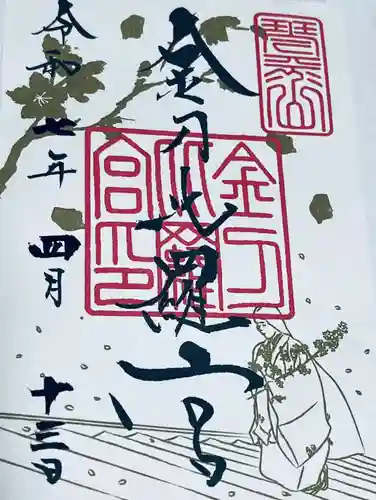 金刀比羅宮
令和七年
四月
十三日
金刀比羅宮印